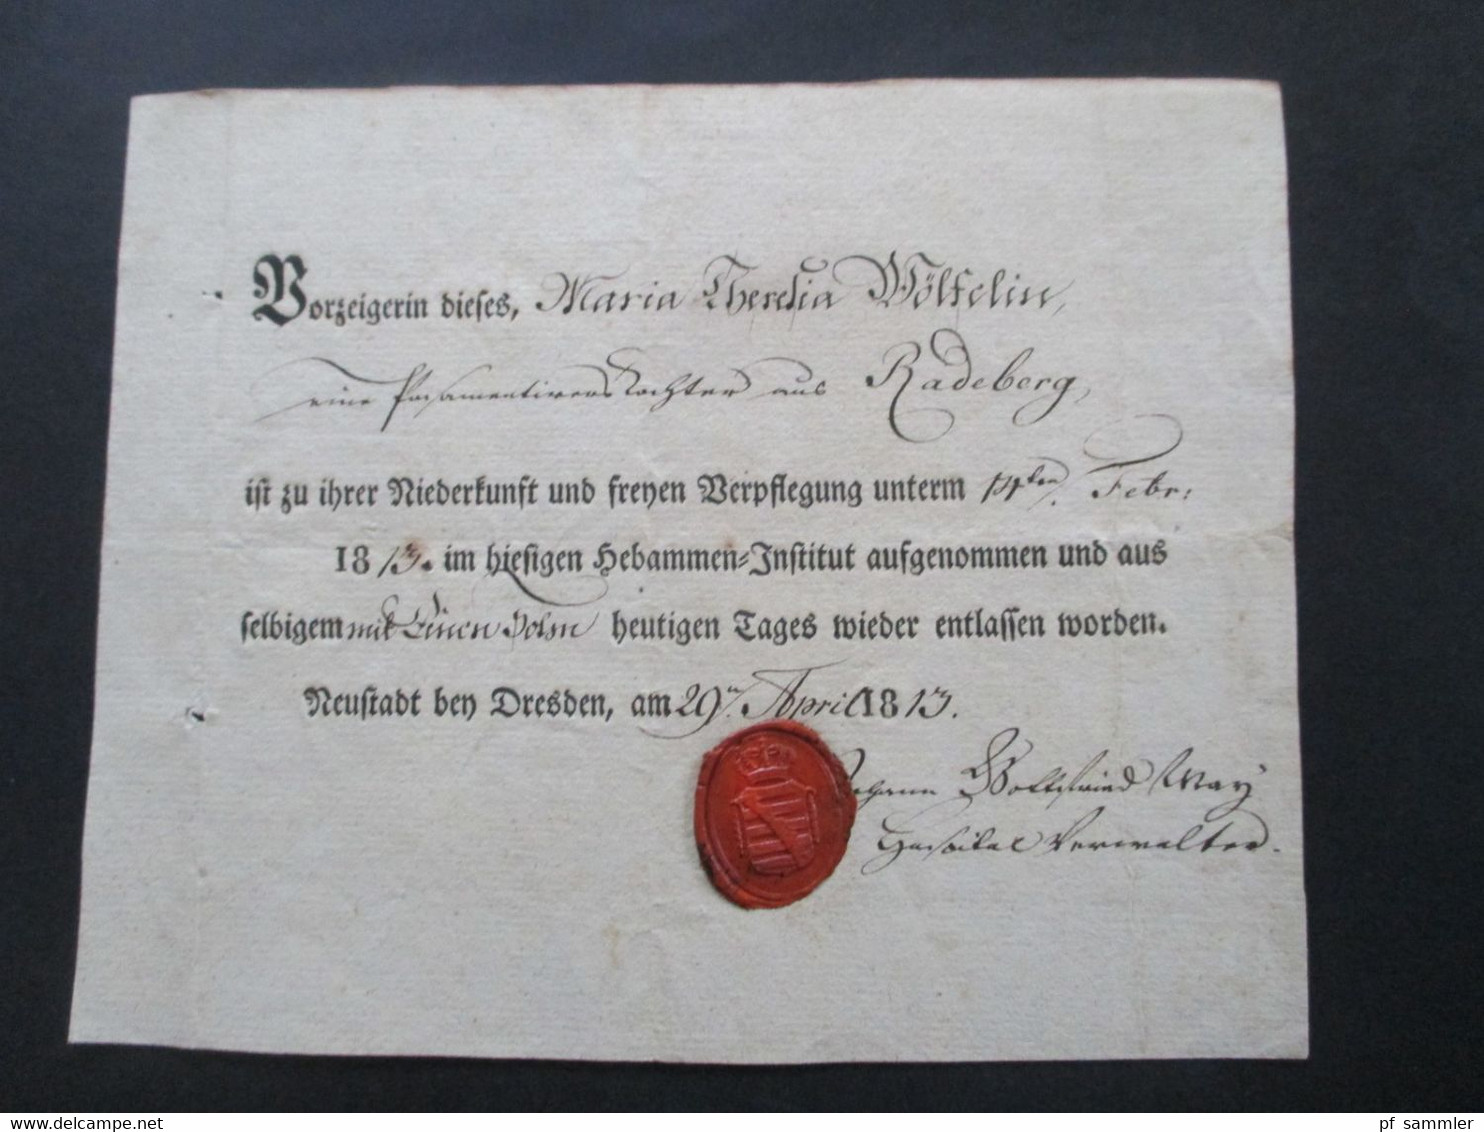 Vorzeigerin dieses, Maria Theresia Wölfelin,
eine Posamentirers Tochter aus Radeberg,
ist zu ihrer Niederkunft und freyen Verpflegung unterm 14ten Febr:
1813. im hiesigen Hebammen-Institut aufgenommen und aus
selbigem mit Einen Sohn heutigen Tages wieder entlassen worden.
Neustadt bey Dresden, am 29n April 1813.
Johann Gottfried May
Hospital Verwalter.
www.delcampe.net
pf_sammler